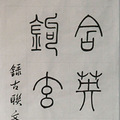 含英
鉤玄
錄古聯文